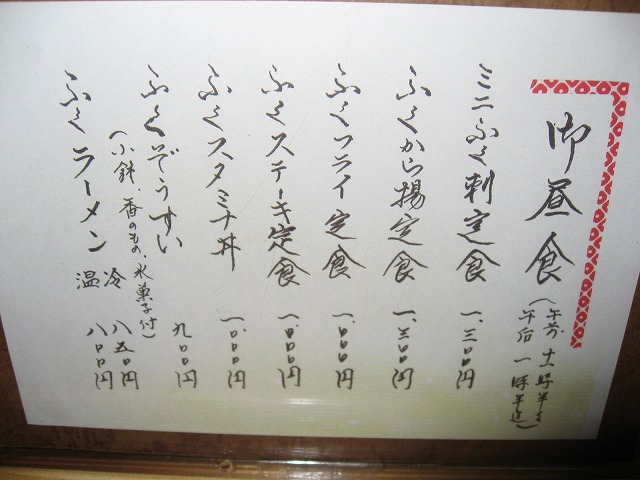 御昼食
(午前 十一時半より
午后 一時半迄)
ミニふく刺定食 一、三〇〇円
ふくから揚定食 一、三〇〇円
ふくフライ定食 一、〇〇〇円
ふくステーキ定食 一、〇〇〇円
ふくスタミナ丼 一、〇〇〇円
ふくぞうすい 九〇〇円
(小鉢、香のもの、水菓子付)
ふくラーメン 冷 八五〇円
温 八〇〇円